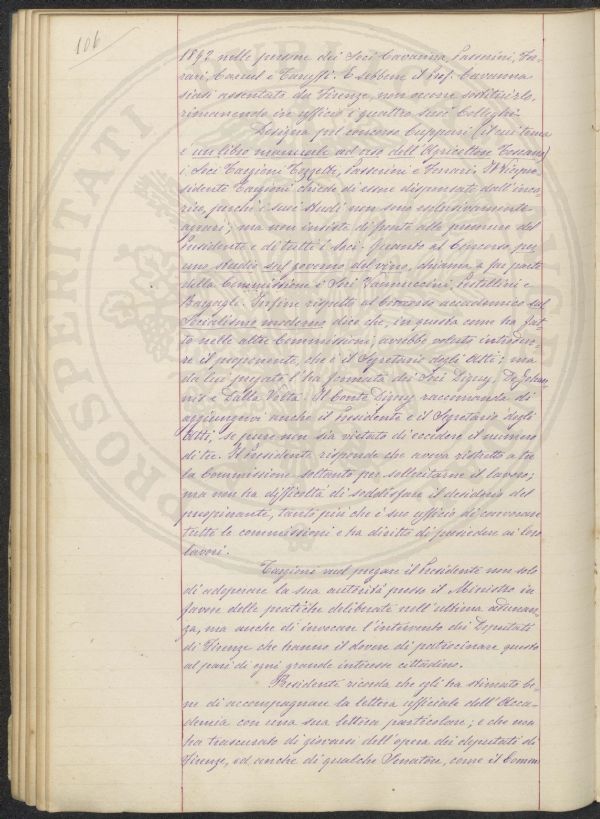 106
1892 nelle persone dei Soci Cavanna, Passerini, Fer-
rari, Caruel e Taruffi. E sebbene il Prof. Cavanna
siasi assentato da Firenze, non occorre sostituirlo,
rimanendo in ufficio i quattro suoi Colleghi.
Designa pel concorso Cuppari (il cui tema
è un libro manuale ad uso dell'Agricoltore Toscano)
i Soci Targioni Tozzetti, Passerini e Ferrari. Il Vicepre-
sidente Targioni chiede di essere dispensato dall'inca-
rico, perchè i suoi studi non sono esclusivamente
agrari; ma non insiste di fronte alle premure del
Presidente e di tutti i Soci. Quanto al Concorso per
uno studio sul governo del vino, chiama a far parte
della Commissione i Soci Vannuccini, Pestellini e
Bargagli. Infine rispetto al Concorso accademico sul
Socialismo moderno dice che, in questa come ha fat-
to nelle altre Commissioni, avrebbe voluto introdur-
re il proponente, che è il Segretario degli Atti; ma
da lui pregato l'ha formata dei Soci Digny, De Johan-
nis e Dalla Volta. Il Conte Digny raccomanda di
aggiungervi anche il Presidente e il Segretario degli
Atti, se pure non sia vietato di eccedere il numero
di tre. Il Presidente risponde che aveva ristretto a tre
la Commissione soltanto per sollecitarne il lavoro;
ma non ha difficoltà di soddisfare il desiderio del
preopinante, tanto più che è suo ufficio di convocare
tutte le commissioni e ha diritto di presiedere ai loro
lavori.
Targioni vuol pregare il Presidente non solo
di adoperare la sua autorità presso il Ministro in
favore delle pratiche deliberate nell'ultima adunan-
za, ma anche di invocare l'intervento dei Deputati
di Firenze che hanno il dovere di patrocinare questo
al pari di ogni grande interesse cittadino.
Presidente ricorda che egli ha stimato be-
ne di accompagnare la lettera ufficiale dell'Acca-
demia con una sua lettera particolare; e che non
ha trascurato di giovarsi dell'opera dei deputati di
Firenze, ed anche di qualche Senatore, come il Comm.